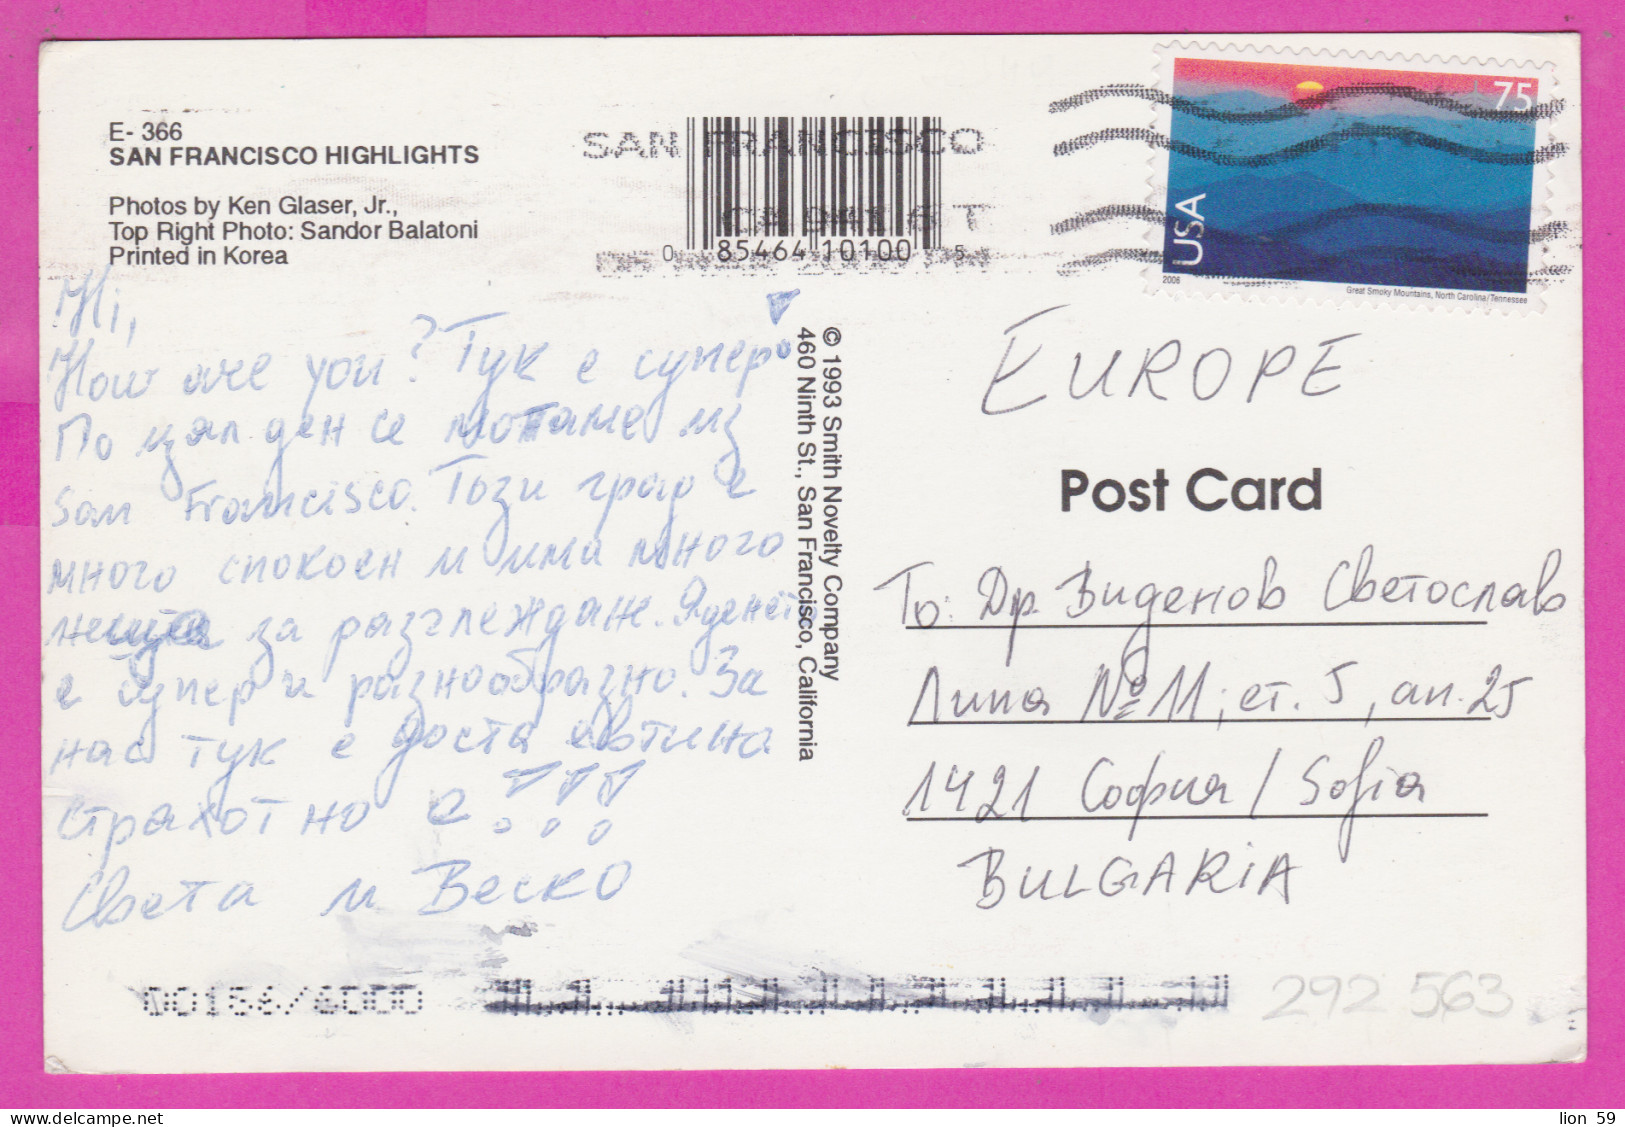 E- 366
SAN FRANCISCO HIGHLIGHTS
Photos by Ken Glaser, Jr.,
Top Right Photo: Sandor Balatoni
Printed in Korea
SAN FRANCISCO
0 85464 10100 5
75
USA
2006
Great Smoky Mountains, North Carolina/Tennessee
Hi,
How are you? Тук е супер!
По цял ден се мотаме из
San Francisco. Този град е
много спокоен и има много
неща за разглеждане. Яденето
е супер и разнообразно. За
нас тук е доста евтино
страхотно е!!!
Цвета и Веско
© 1993 Smith Novelty Company
460 Ninth St., San Francisco, California
EUROPE
Post Card
To: Др. Виденов Светослав
Липа №11, ет. 5, ап. 25
1421 София / Sofia
BULGARIA
292 563
lion 59
www.delcampe.net